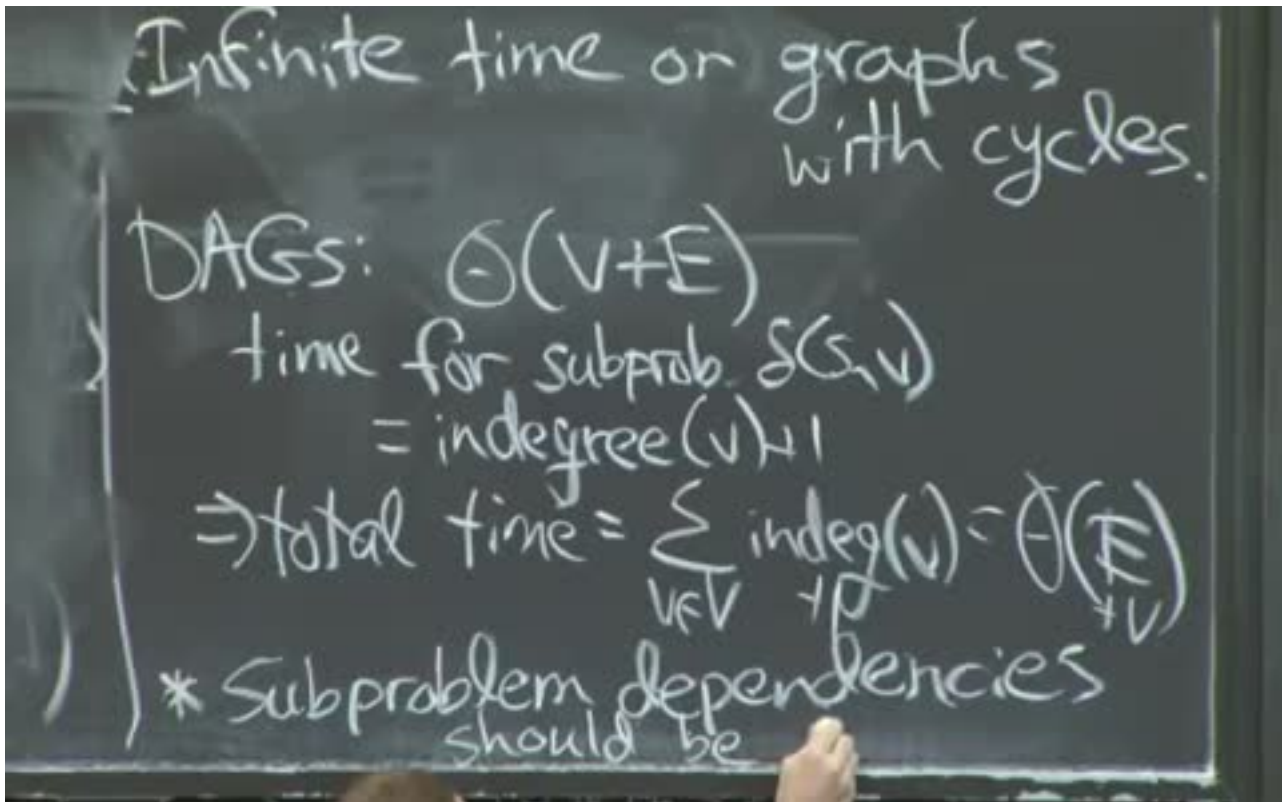 Infinite time on graphs
with cycles.
DAGs: Θ(V+E)
time for subprob. δ(s,v)
= indegree(v)+1
⇒ total time = Σ indeg(v) = Θ(E
v∈V +1 +V)
* Subproblem dependencies
should be